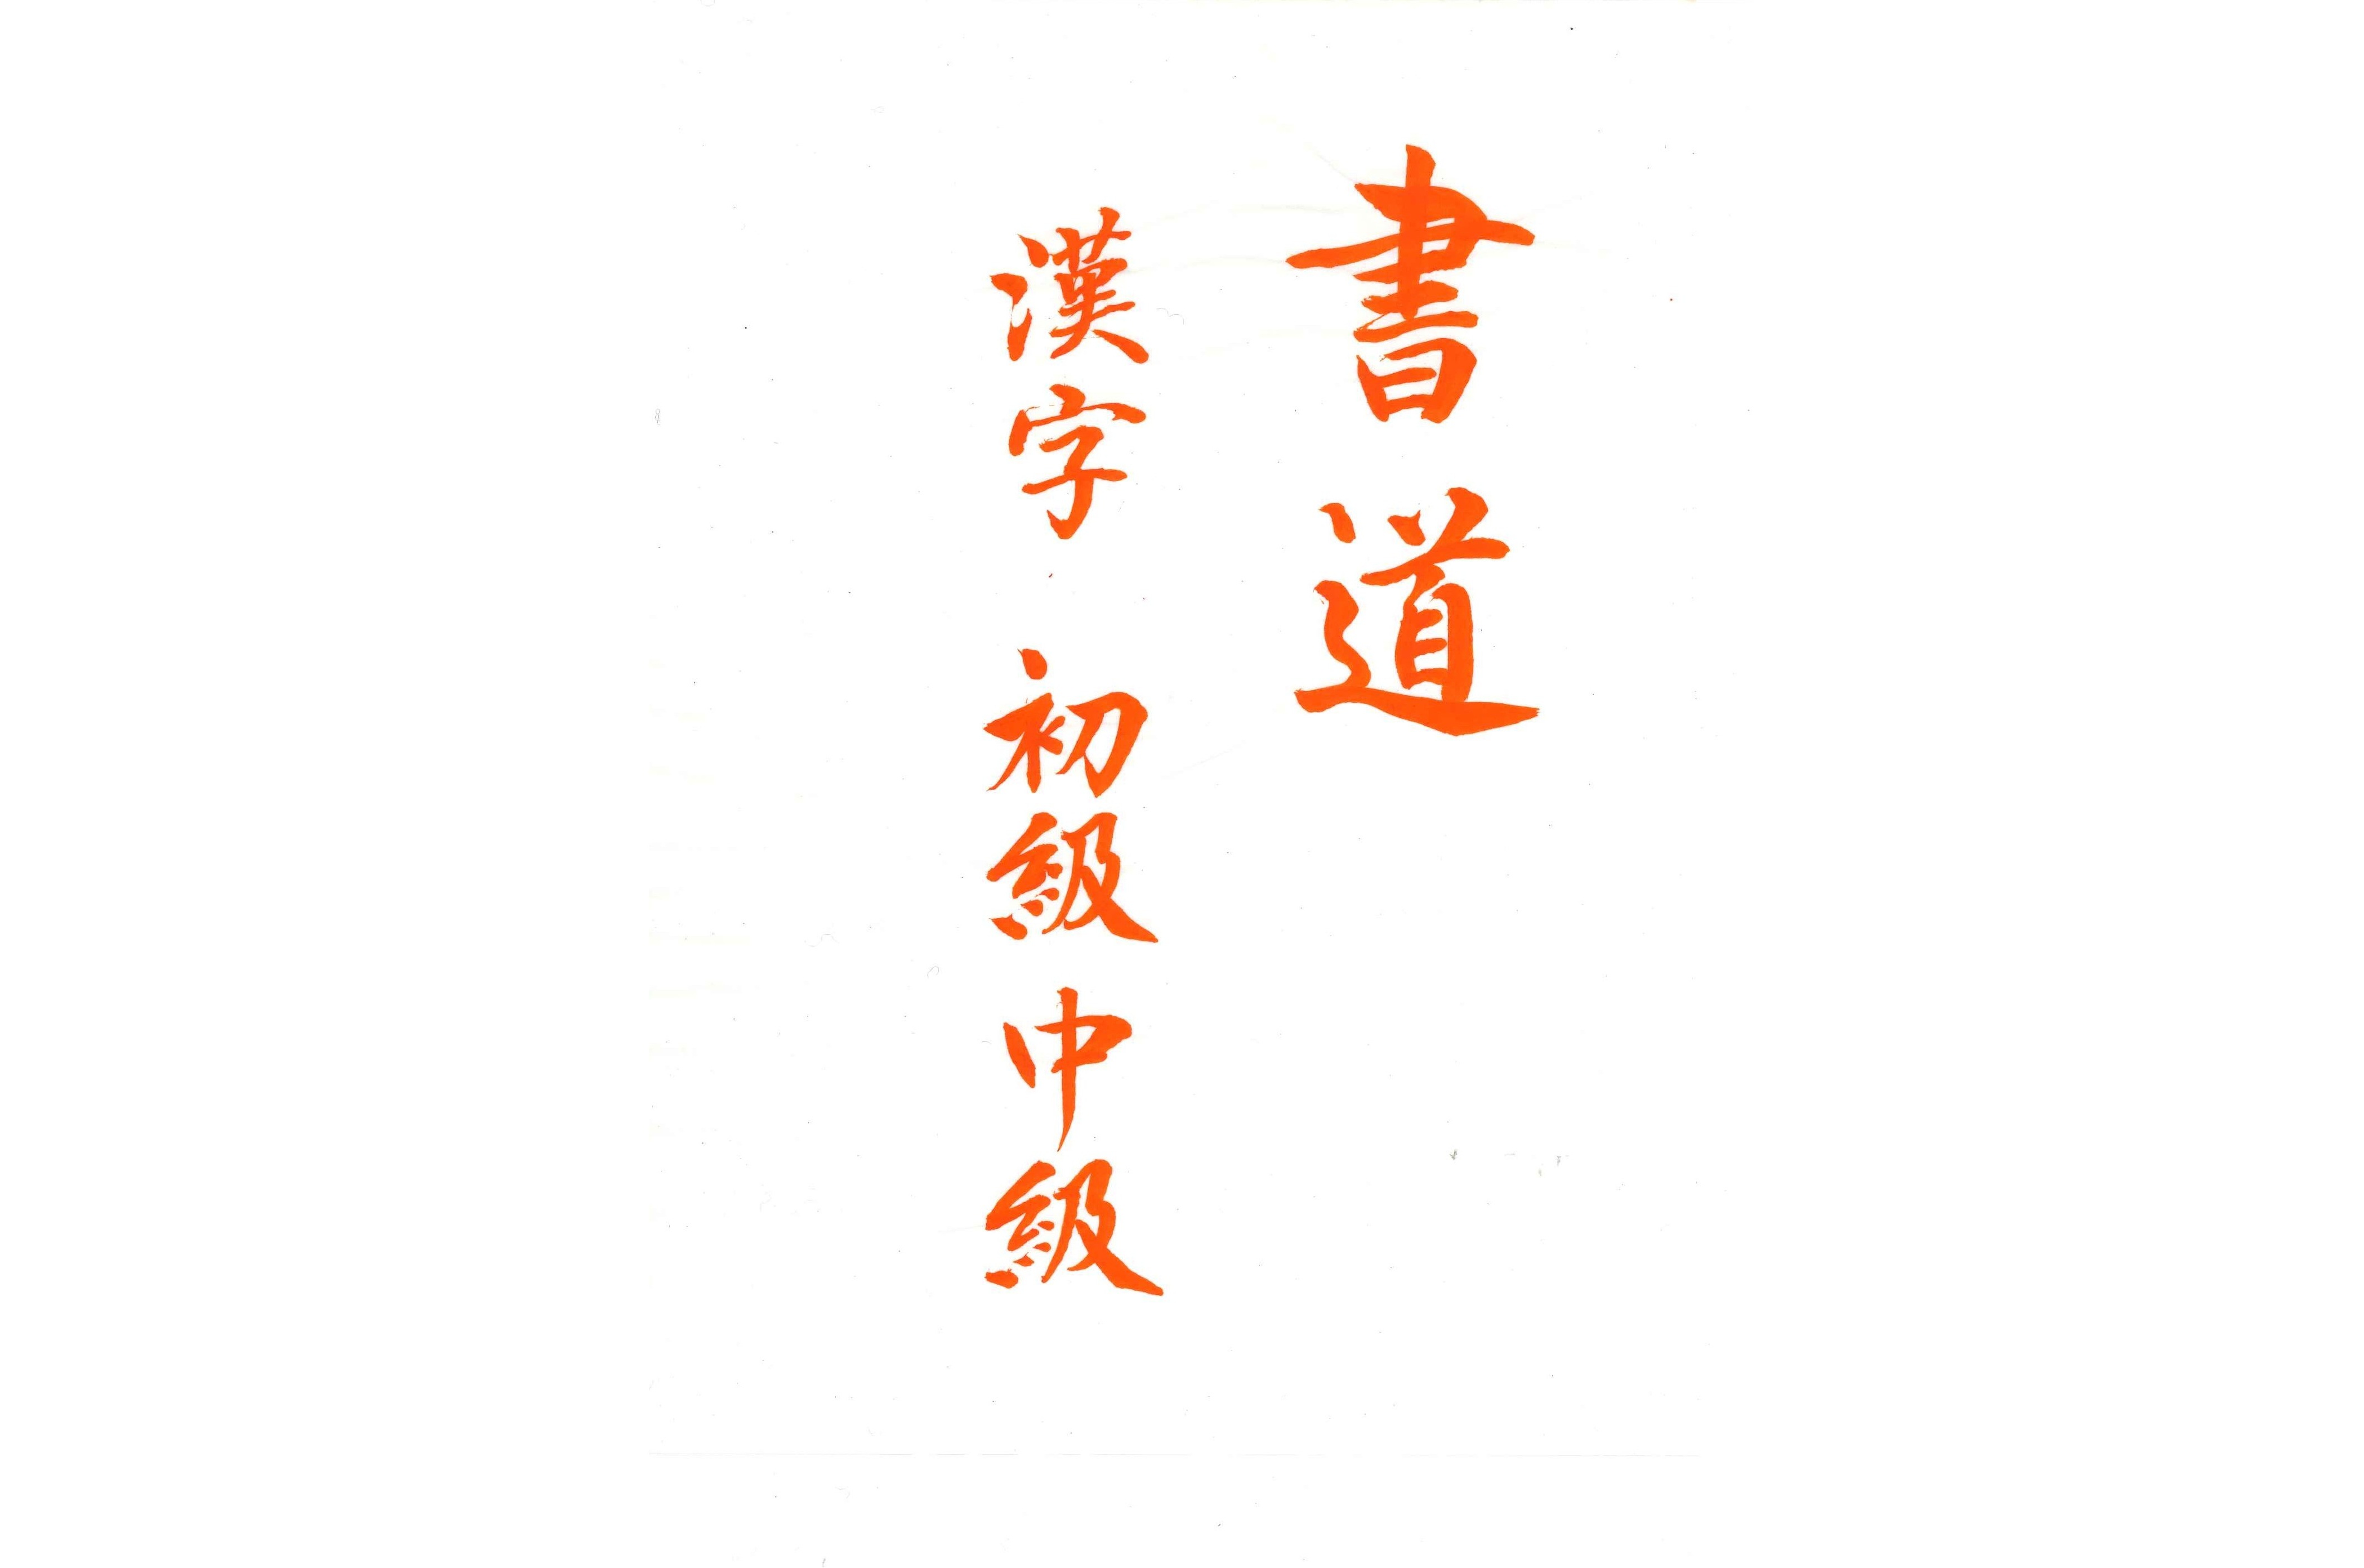 書道
漢字 初級中級